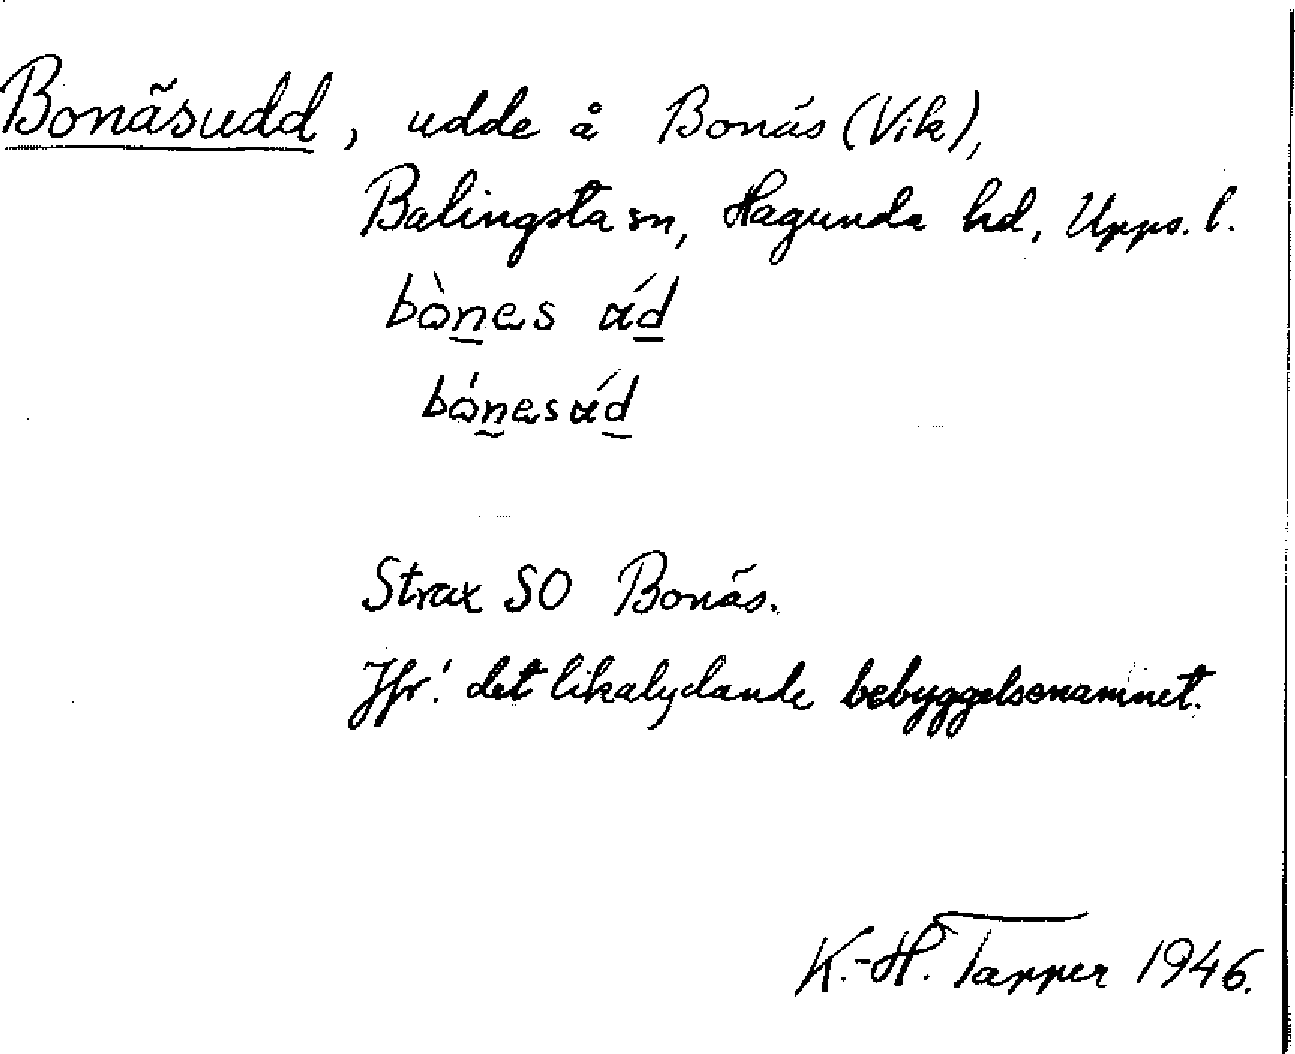 Bonäsudd, udde å Bonäs (Vik),
Balingsta sn, Hagunda hd, Upps. l.
bònes úd
bónesúd
Strax SO Bonäs.
Jfr! det likalydande bebyggelsenamnet.
K.-H. Tapper 1946.